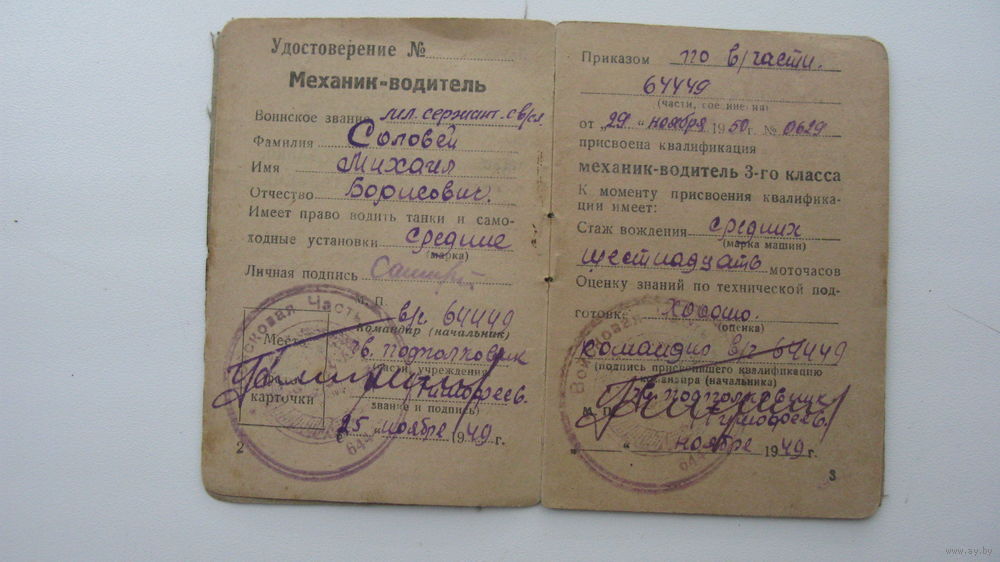 Удостоверение №
Механик-водитель
Воинское звание мл. сержант св/сл
Фамилия Соловей
Имя Михаил
Отчество Борисович.
Имеет право водить танки и само-
ходные установки средние
(марка)
Личная подпись
М. П.
в/ч 64449
Командир (начальник)
Место
гв. подполковник
части, учреждения
карточки
Тимофеев.
звание и подпись)
"25" ноября 1949 г.
2
Войсковая Часть
644
Приказом по в/части.
64449
(части, соединения)
от "29" ноября 1950 г. № 0629
присвоена квалификация
механик-водитель 3-го класса
К моменту присвоения квалифика-
ции имеет:
Стаж вождения средних
(марка машин)
шестнадцать моточасов
Оценку знаний по технической под-
готовке хорошо.
(оценка)
командир в/ч 64449
(подпись присвоившего квалификацию
командира (начальника)
гв. подполковник
М. П.
Тимофеев.
" " ноября 1949 г.
3
Войсковая
644
www.ay.by